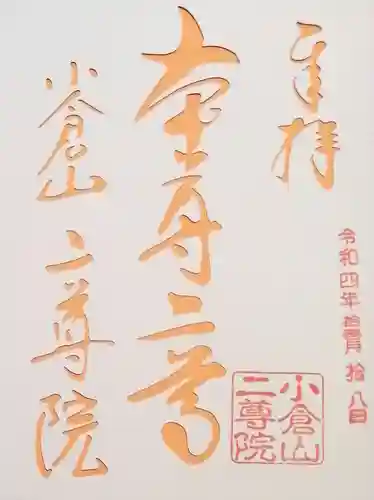 奉拝
令和四年拾壹月拾八日
本尊二尊
小倉山
二尊院
小倉山
二尊院